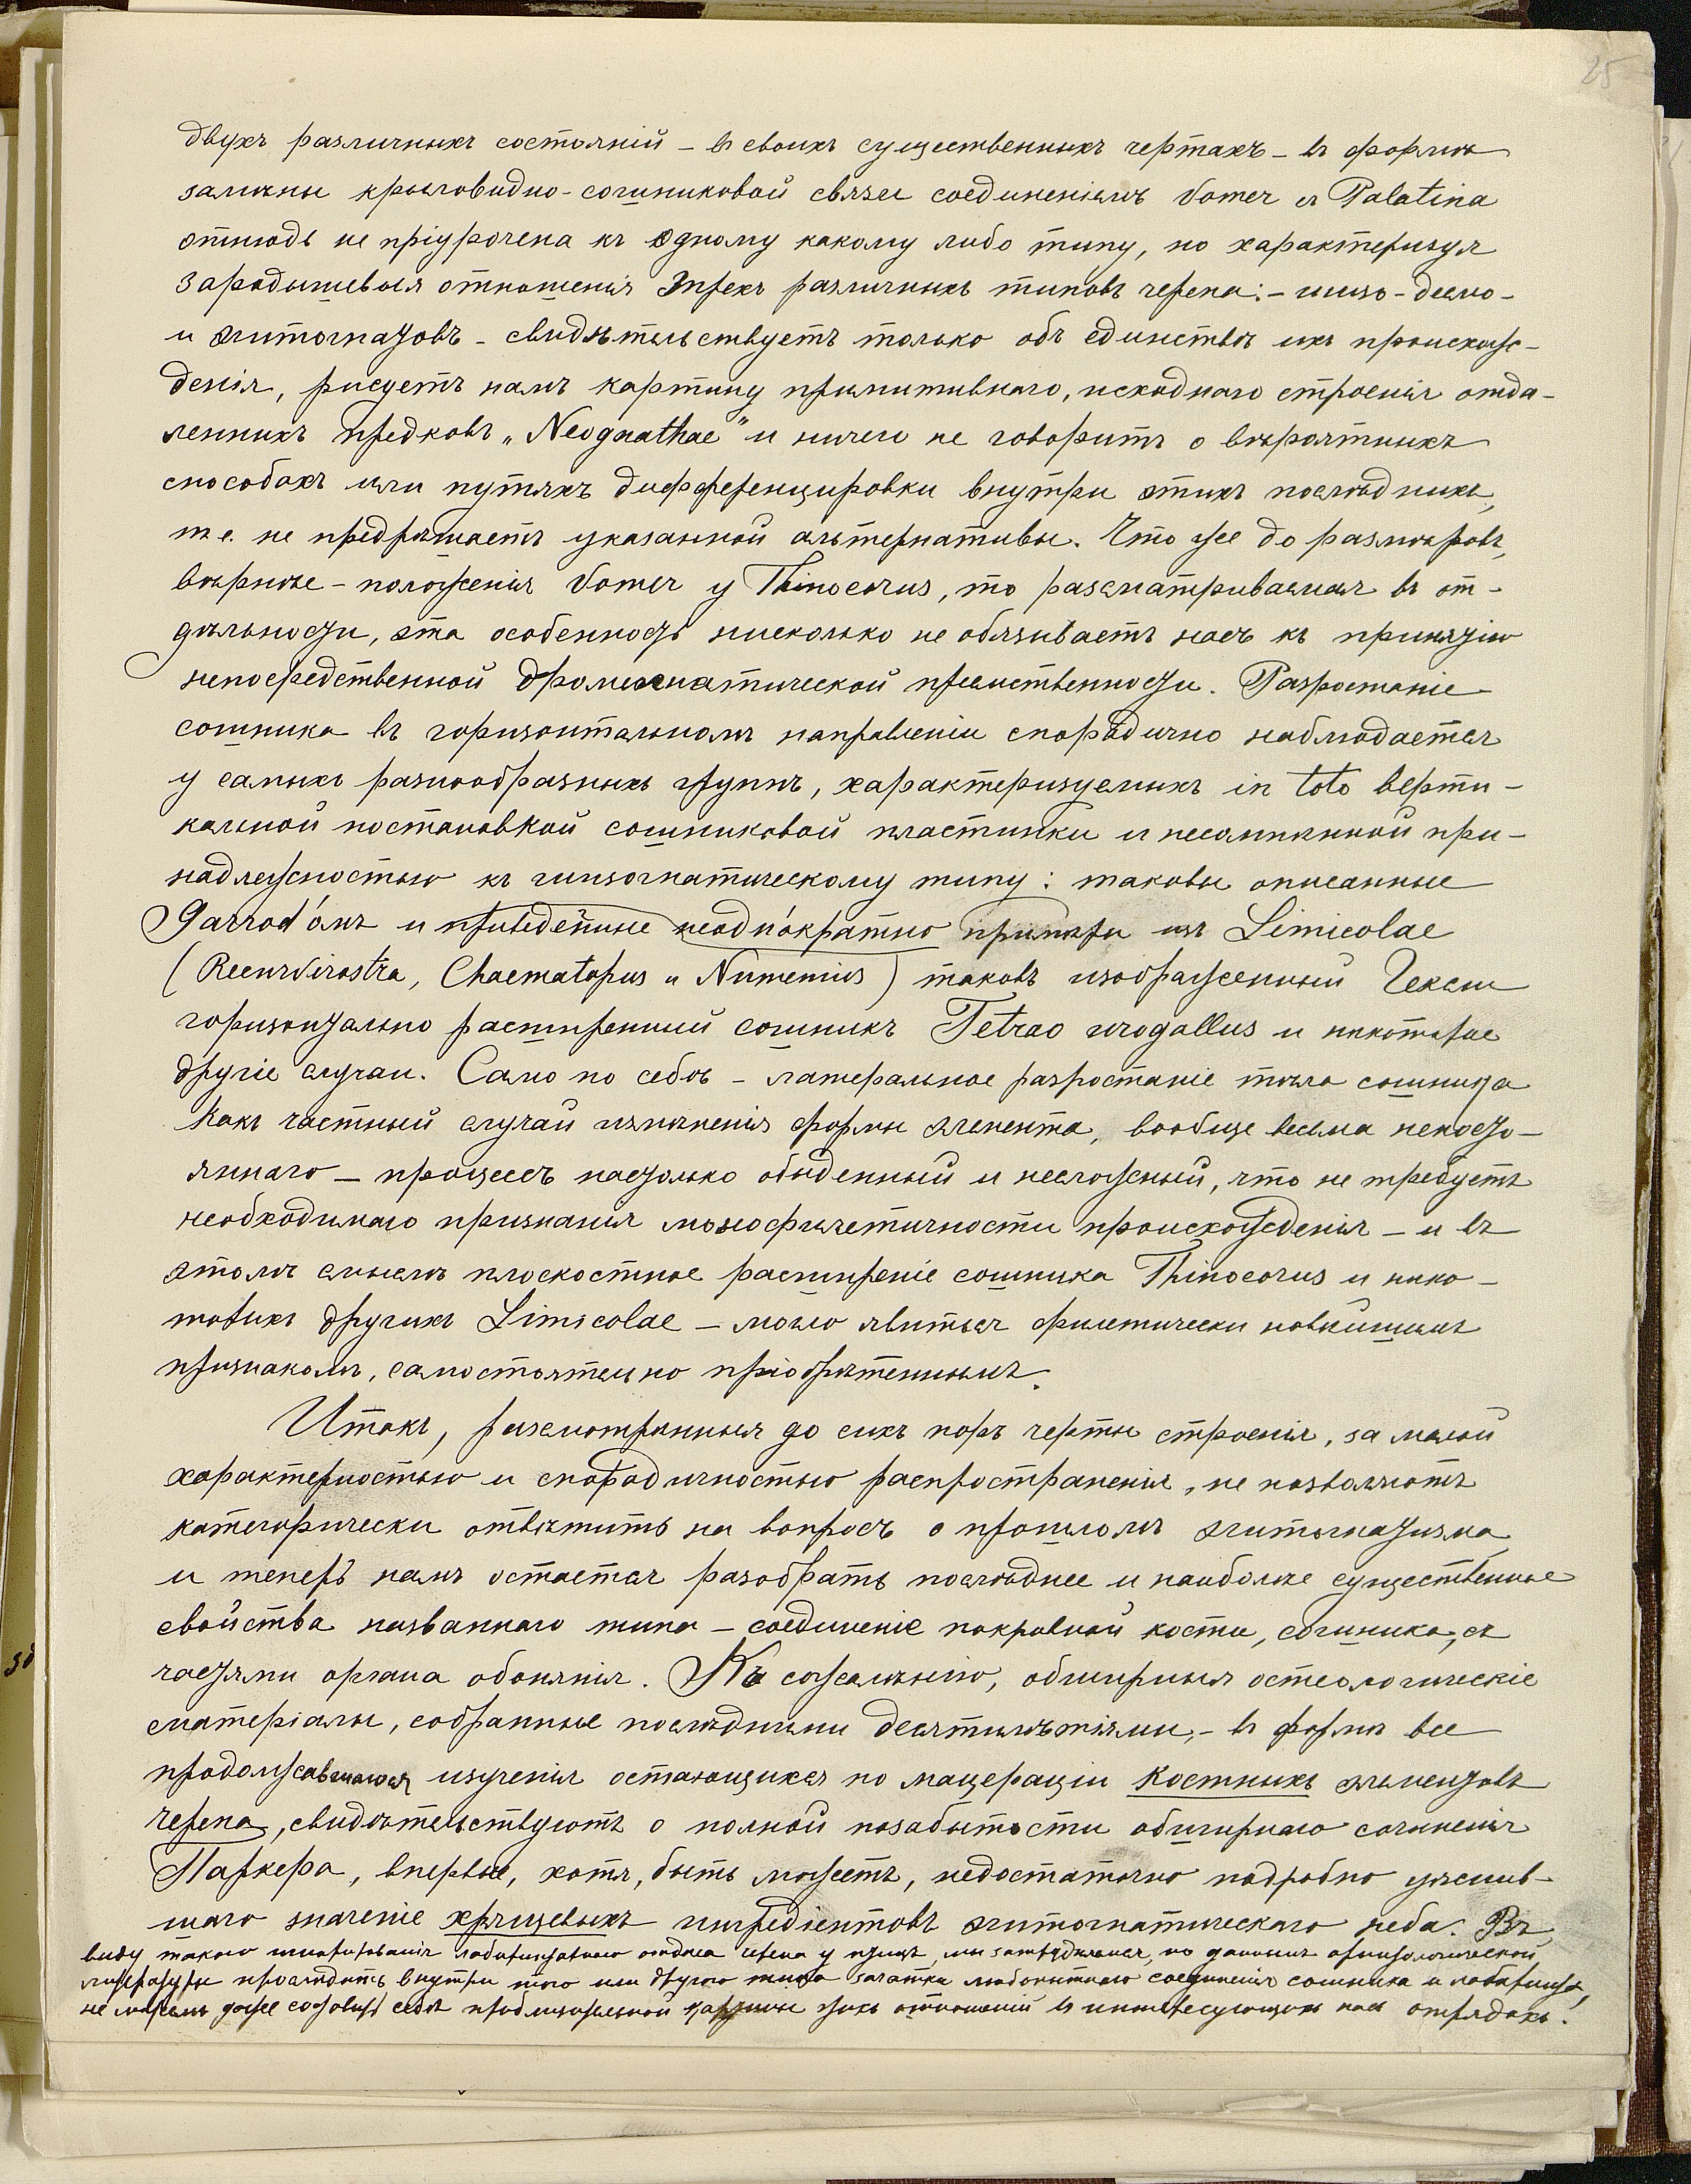 25
двухъ различныхъ состояній – въ своихъ существенныхъ чертахъ – въ формѣ
замѣны крыловидно-сошниковой связи соединеніемъ Vomer и Palatina
отнюдь не пріурочена къ одному какому либо типу, но характеризуя
зародышевыя отношенія трехъ различныхъ типовъ черепа: – шизо-десмо-
и эгитогнатовъ – свидѣтельствуетъ только объ единствѣ ихъ происхож-
денія, рисуетъ намъ картину примитивнаго, исходнаго строенія отда-
ленныхъ предковъ „Neognathae" и ничего не говоритъ о вѣроятныхъ
способахъ или путяхъ дифференцировки внутри этихъ послѣднихъ,
т.е. не предрѣшаетъ указанной альтернативы. Что же до размѣровъ,
вѣрнѣе – положенія Vomer у Thinocorus, то разсматриваемая въ от-
дѣльности, эта особенность нисколько не обязываетъ насъ къ принятію
непосредственной дромеогнатической преемственности. Разростаніе
сошника въ горизонтальномъ направленіи спорадично наблюдается
у самыхъ разнообразныхъ группъ, характеризуемыхъ in toto верти-
кальной постановкой сошниковой пластинки и несомнѣнной при-
надлежностью къ шизогнатическому типу: таковы описанные
Garrod'омъ и приведённые неоднократно примѣры изъ Limicolae
(Recurvirostra, Chaematopus и Numenius) таковъ изображенный Гексли
горизонтально расширенный сошникъ Tetrao urogallus и нѣкоторые
другіе случаи. Само по себѣ – латеральное разростаніе тѣла сошника
какъ частный случай измѣненія формы элемента, вообще весьма непосто-
яннаго – процессъ настолько обыденный и несложный, что не требуетъ
необходимаго признанія монофилетичности происхожденія – и въ
этомъ смыслѣ плоскостное расширеніе сошника Thinocorus и нѣко-
торыхъ другихъ Limicolae – могло явиться филетически новѣйшимъ
признакомъ, самостоятельно пріобрѣтеннымъ.
Итакъ, разсмотрѣнныя до сихъ поръ черты строенія, за малой
характерностью и спорадичностью распространенія, не позволяютъ
категорически отвѣтить на вопросъ о прошломъ эгитогнатизма
и теперь намъ остается разобрать послѣднее и наиболѣе существенное
свойства названнаго типа – соединеніе покровной кости, сошника, съ
частями органа обонянія. Къ сожалѣнію, обширныя остеологическіе
матеріалы, собранные послѣдними десятилѣтіями, – въ формѣ все
продолжавшагося изученія остающихся по мацераціи костныхъ элементовъ
черепа, свидѣтельствуютъ о полной позабытости обширнаго сочиненія
Паркера, впервые, хотя, быть можетъ, недостаточно подробно уяснив-
шаго значеніе хрящевыхъ ингредіентовъ эгитогнатическаго неба. Въ
виду такого игнорированія лабиринтоваго отдѣла черепа у птицъ, мы затрудняемся, по даннымъ орнитологической
литературы прослѣдить внутри того или другого типа зачатки любопытнаго соединенія сошника и лабиринта,
не можемъ даже составить себѣ приблизительной картины этихъ отношеній въ интересующихъ насъ отрядахъ.